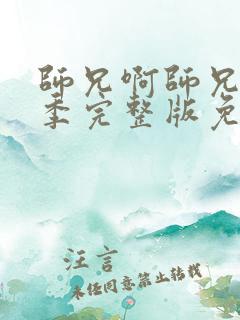 師兄啊師兄
季完整版免
汪言
未经同意禁止转载